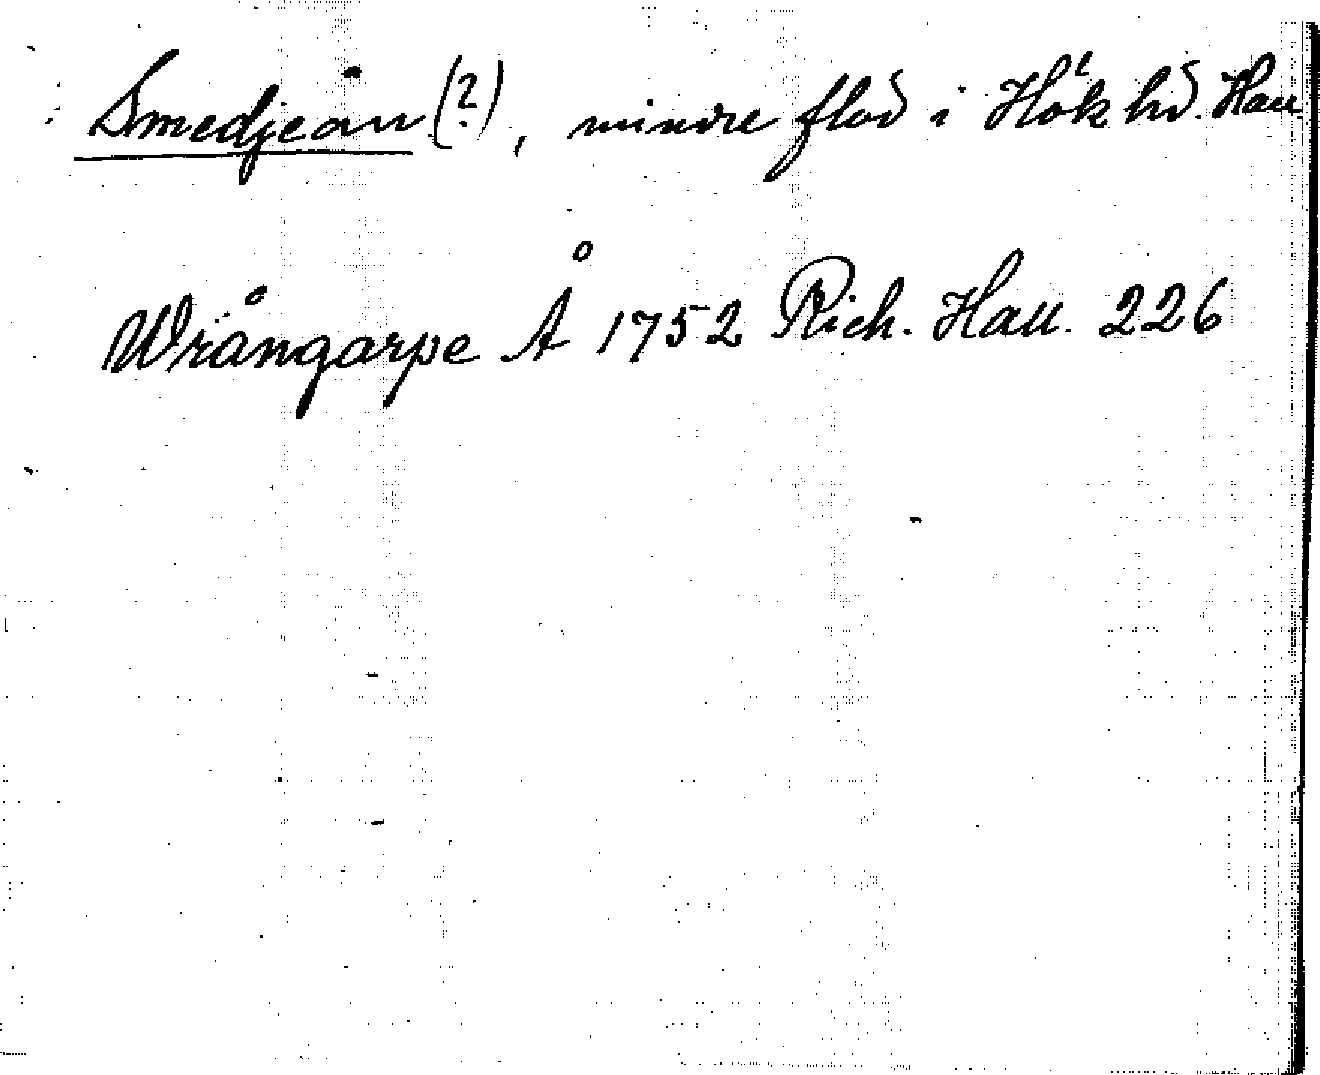 Smedjeån (?), mindre flod i Hök hd. Hall.
Wrångarpe Å 1752 Rich. Hall. 226